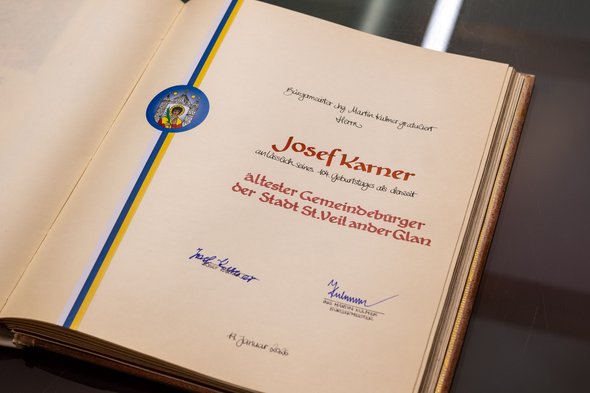 Bürgermeister Ing. Martin Kulmer gratuliert
Herrn
Josef Karner
anlässlich seines 104. Geburtstages als derzeit
ältester Gemeindebürger
der Stadt St. Veit an der Glan
Josef Karner
Josef Karner
Kulmer
Ing. Martin Kulmer
Bürgermeister
Januar 2026